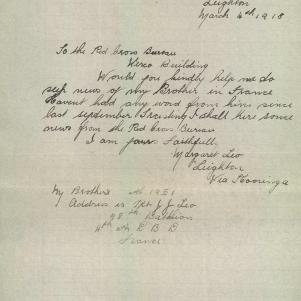 Leighton
March 4th 1918
To the Red Cross Bureau
Verco Building
Would you kindly help me do
seek news of my Brother in France
Havent had any word from him since
last september Trusting I shall hire some
news from the Red Cross Bureau
I am yours Faithfull
Margaret Leo
Leighton
Via Kooringa
My Brothers No 1951
Address is Pte J J Leo
48th Battion
4th A D B D
France